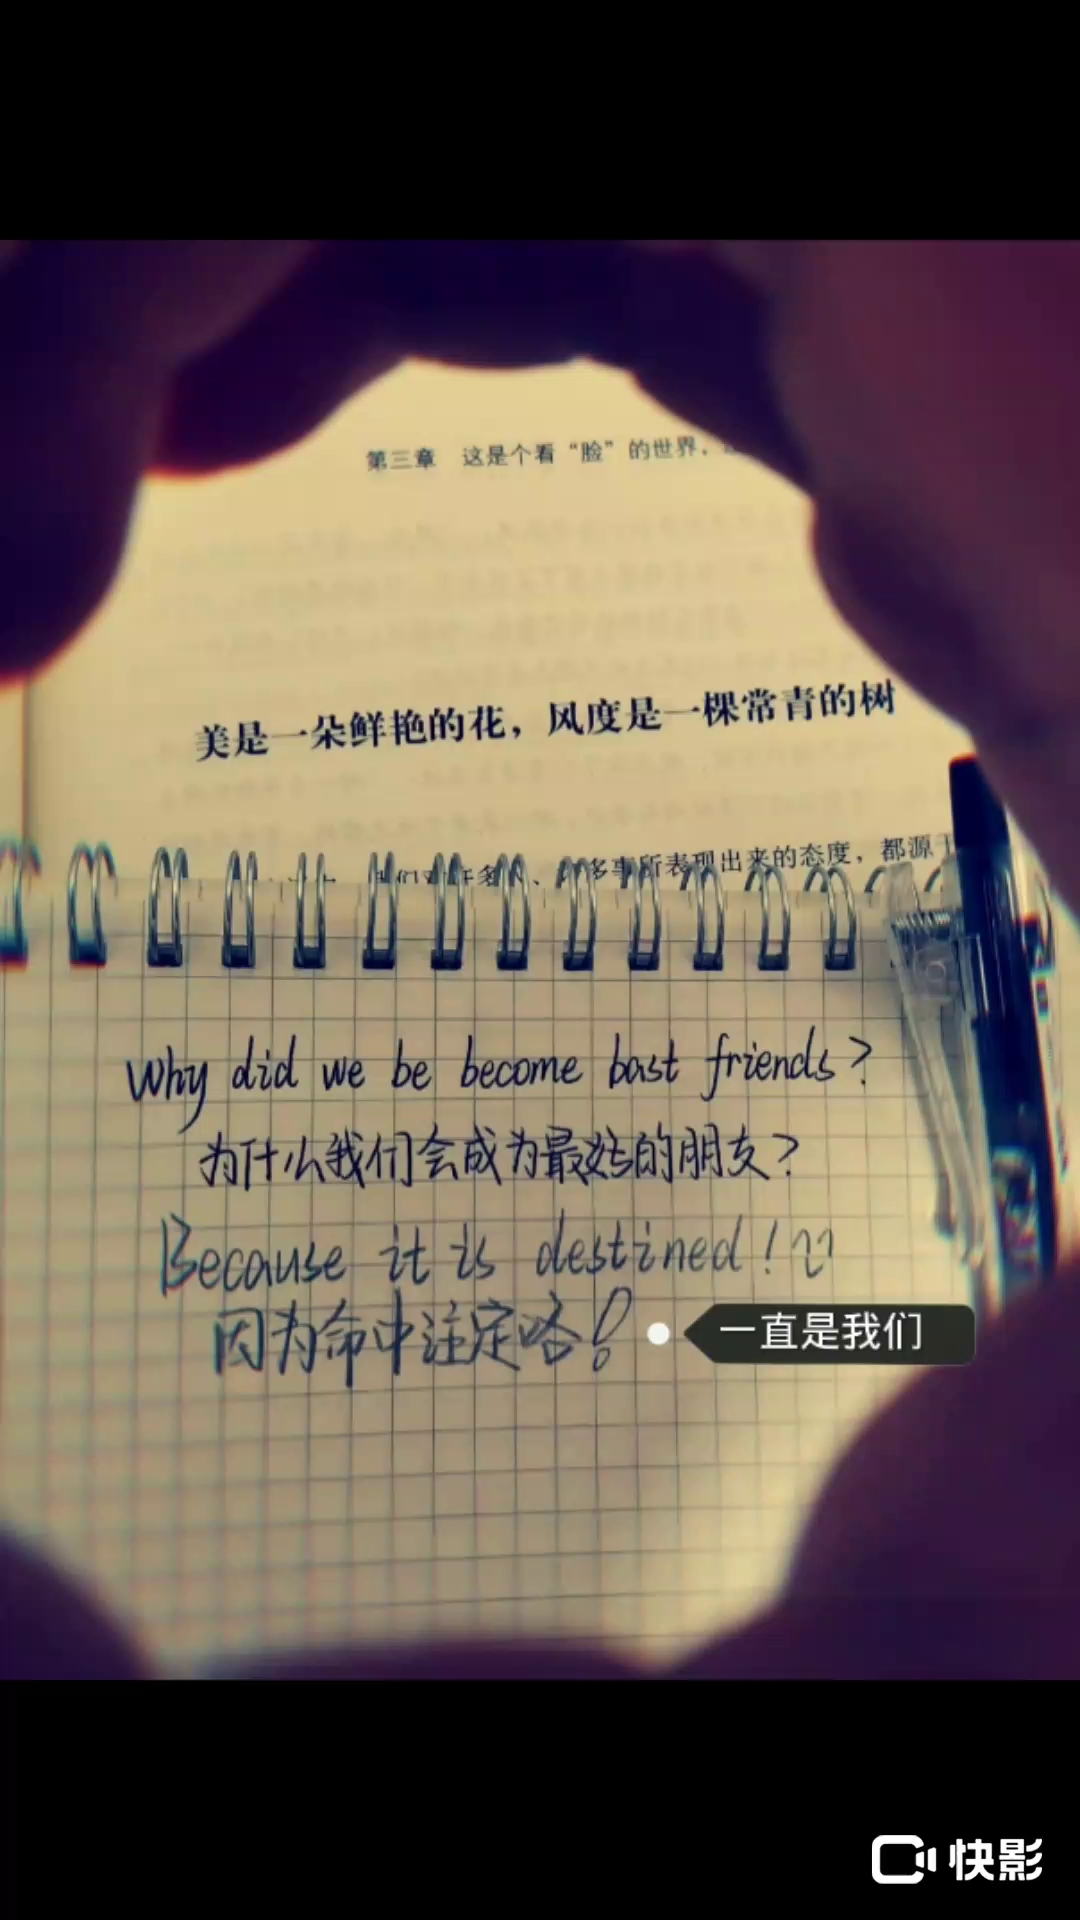 第三章 这是个看“脸”的世界，
美是一朵鲜艳的花，风度是一棵常青的树
多事所表现出来的态度，都源于
Why did we be become bast friends?
为什么我们会成为最好的朋友?
Because it is destined!
因为命中注定咯!
一直是我们
快影